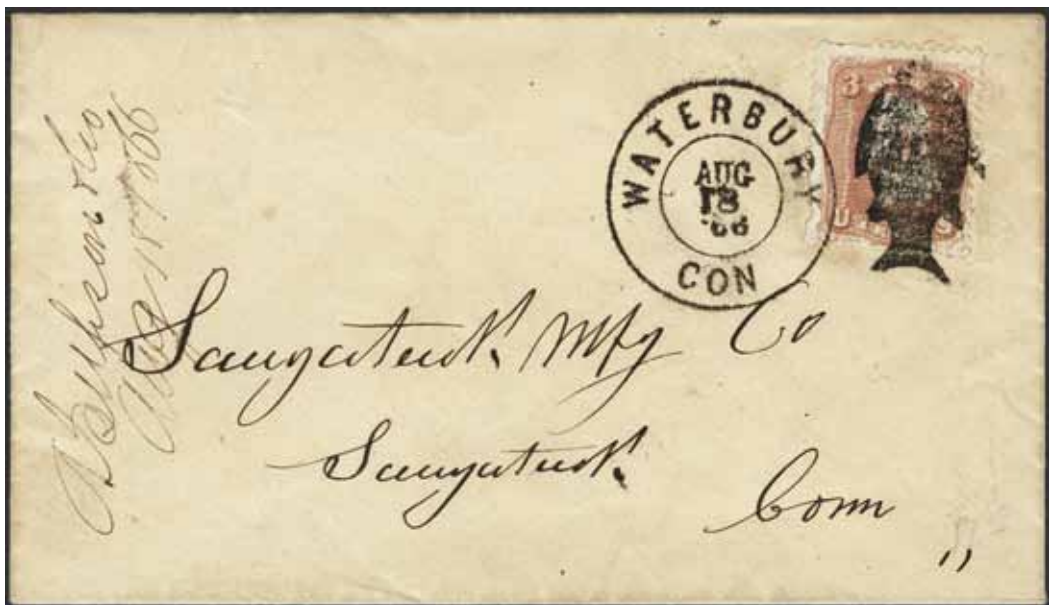 WATERBURY
AUG
18
'66
CON
3
U S
Saugatuck Mfg Co
Saugatuck
Conn
Aug 18 1866